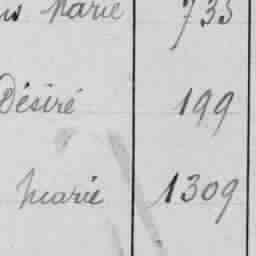 Marie 735
Désiré 199
Marie 1309